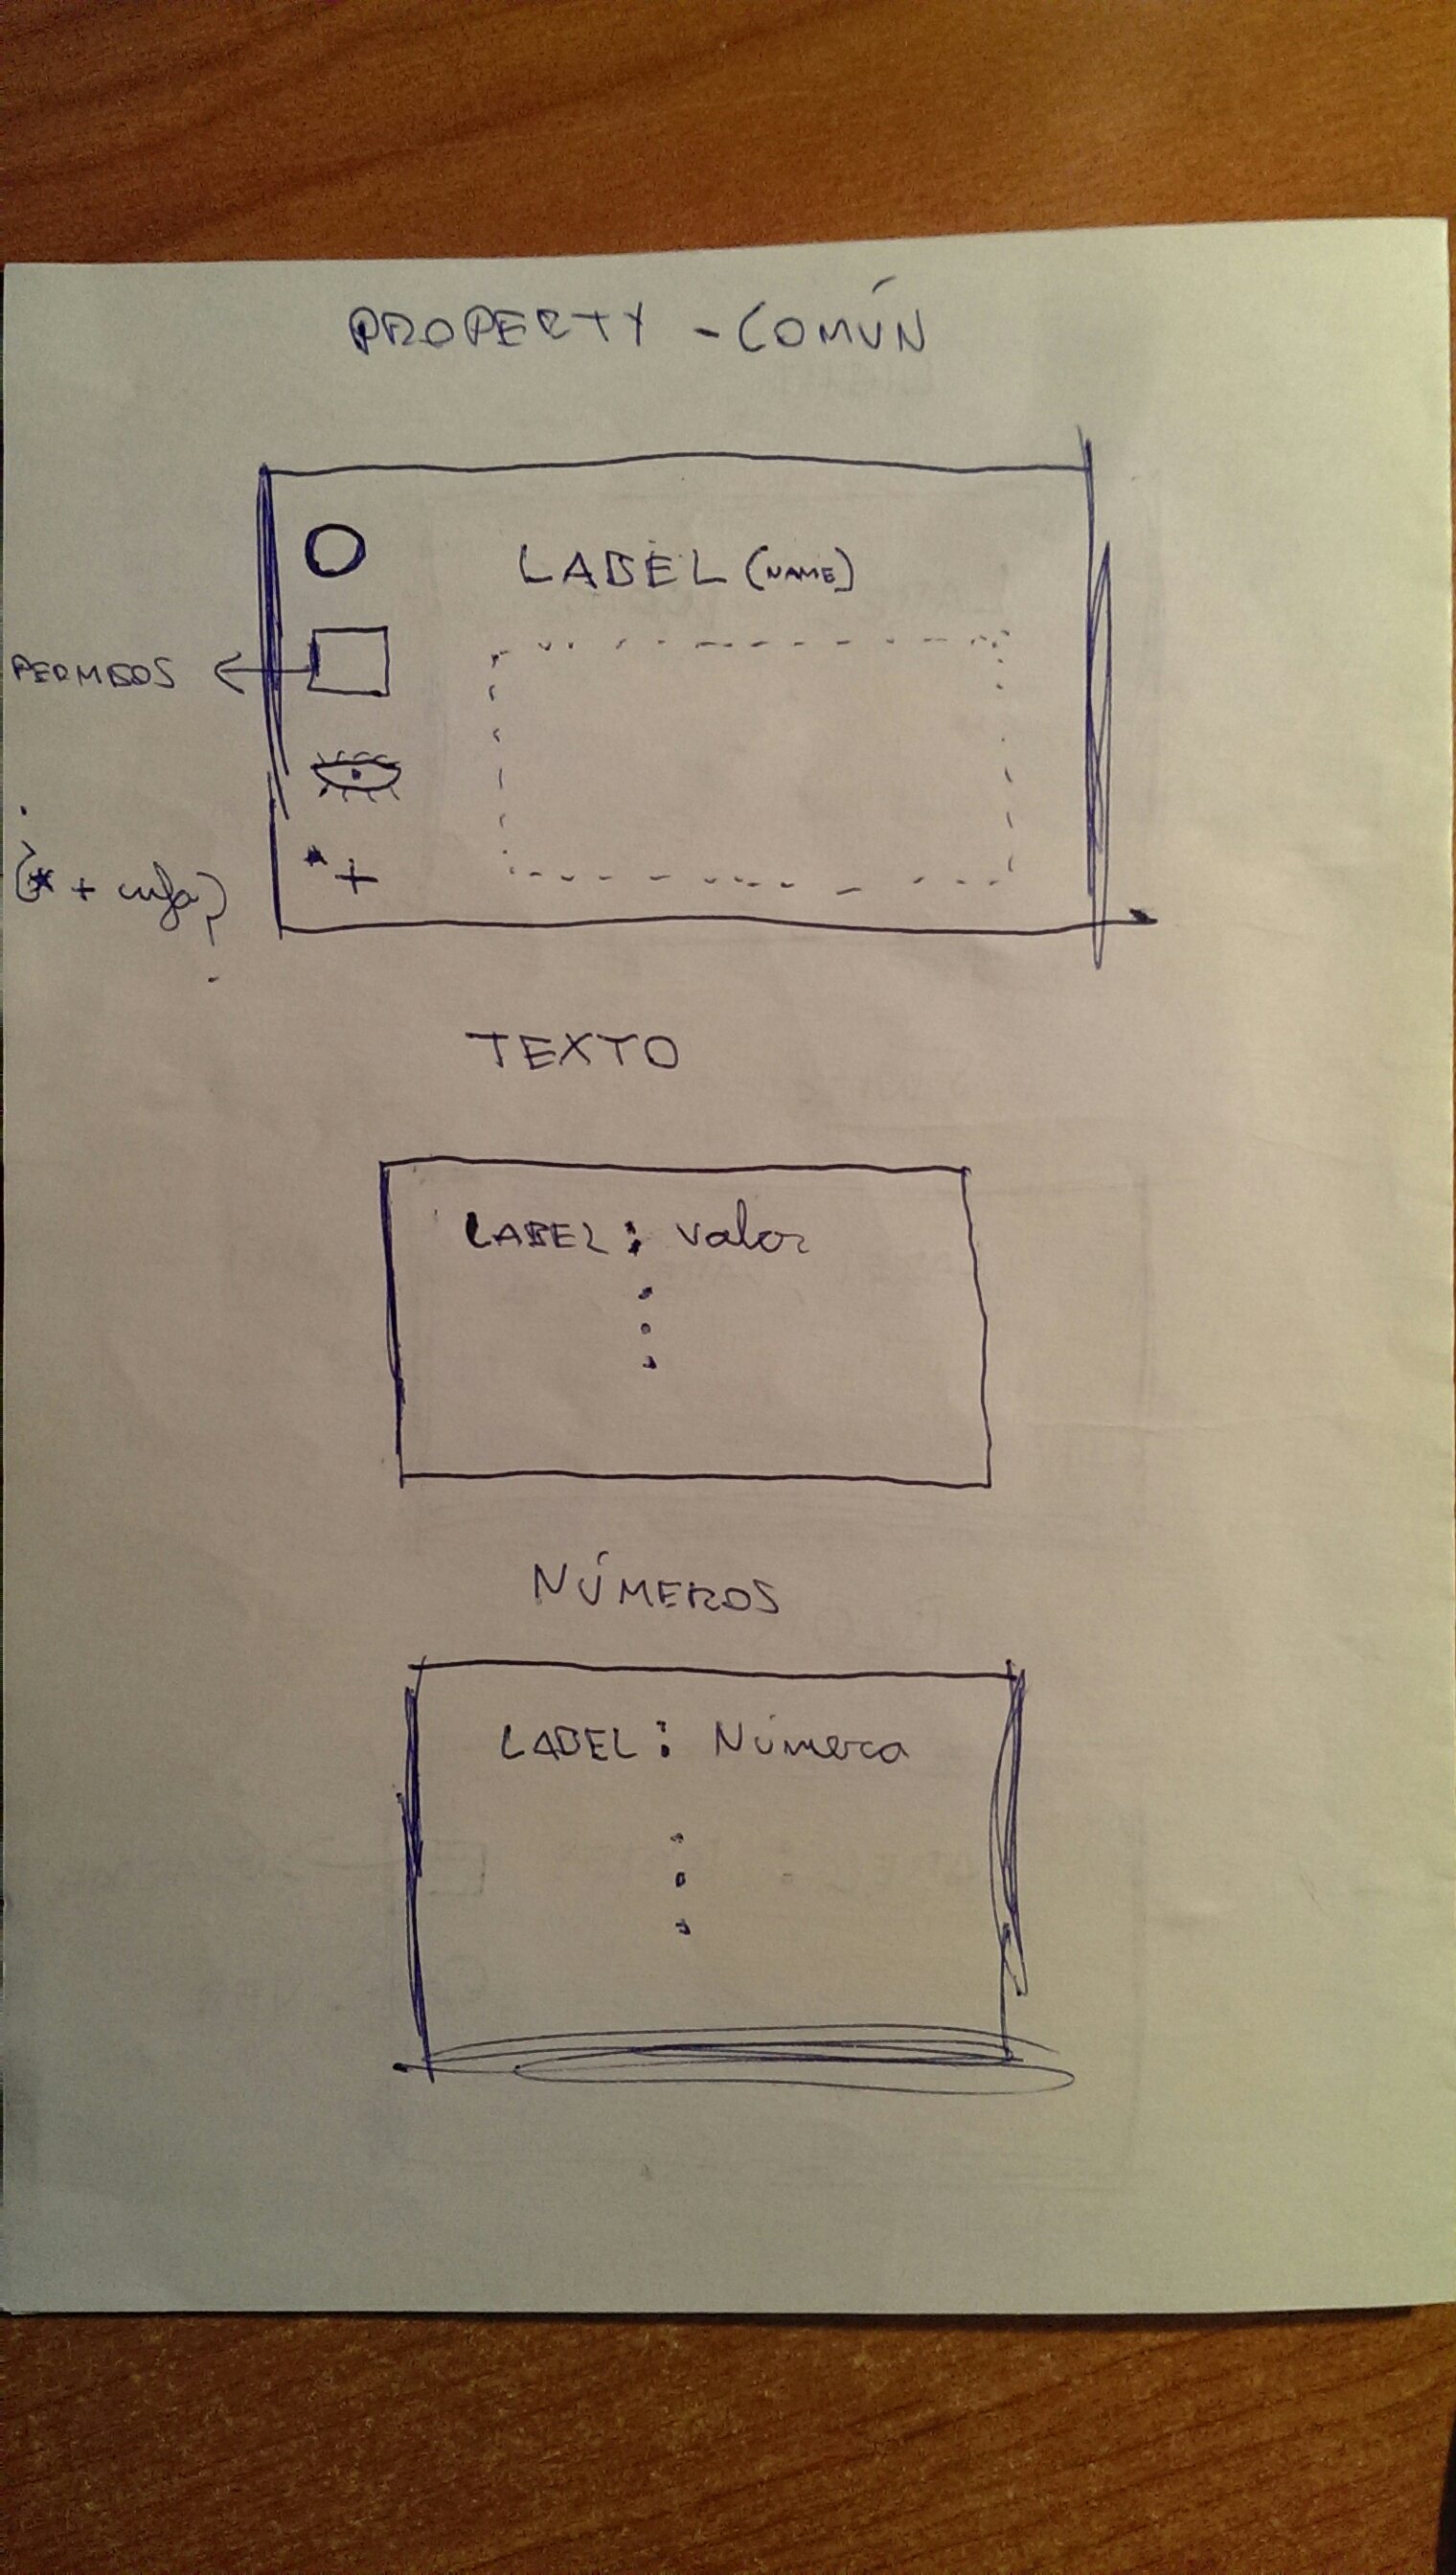 PROPERTY - COMÚN
LABEL (NAME)
PERMISOS
*+
¿* + info?
TEXTO
LABEL: valor
NÚMEROS
LABEL: Número